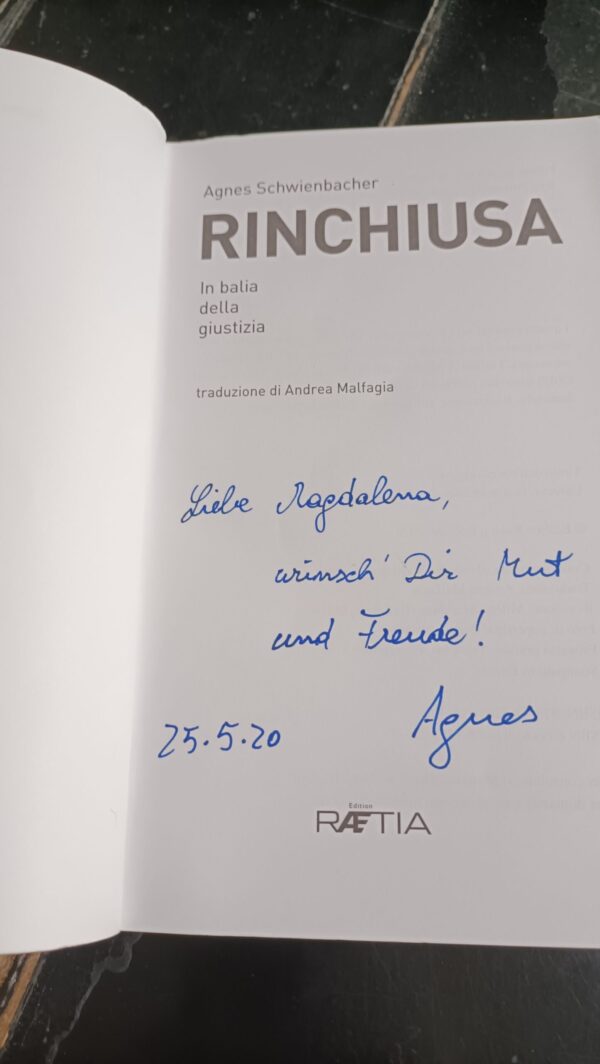 Agnes Schwienbacher
RINCHIUSA
In balia
della
giustizia
traduzione di Andrea Malfagia
Liebe Magdalena,
wünsch' Dir Mut
und Freude!
25.5.20
Agnes
Edition
RÆTIA